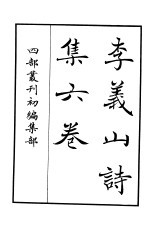 李義山詩
集六卷
四部叢刊初編集部